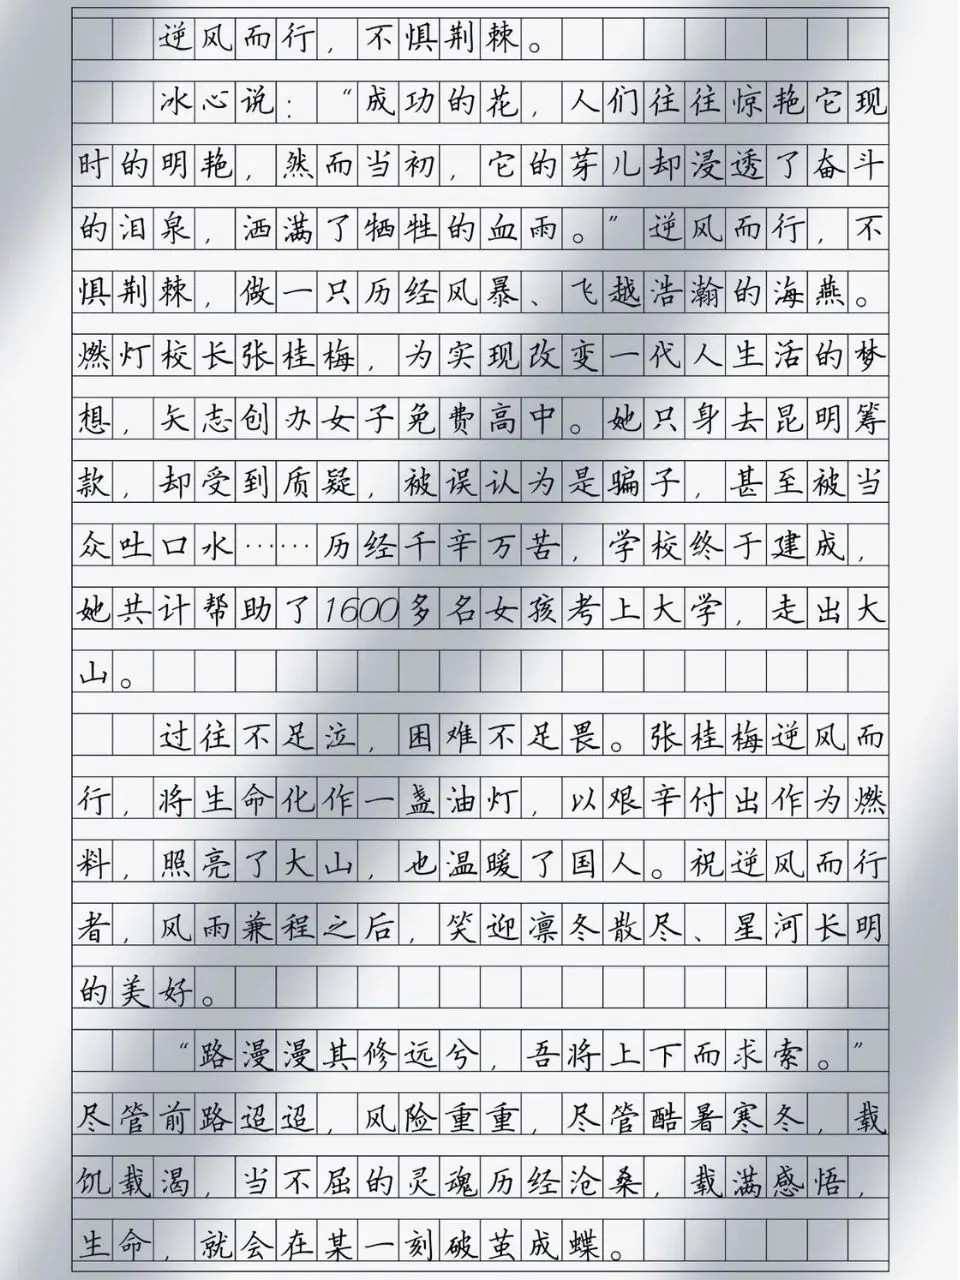 逆风而行，不惧荆棘。
冰心说：“成功的花，人们往往惊艳它现
时的明艳，然而当初，它的芽儿却浸透了奋斗
的泪泉，洒满了牺牲的血雨。”逆风而行，不
惧荆棘，做一只历经风暴、飞越浩瀚的海燕。
燃灯校长张桂梅，为实现改变一代人生活的梦
想，矢志创办女子免费高中。她只身去昆明筹
款，却受到质疑，被误认为是骗子，甚至被当
众吐口水……历经千辛万苦，学校终于建成，
她共计帮助了1600多名女孩考上大学，走出大
山。
过往不足泣，困难不足畏。张桂梅逆风而
行，将生命化作一盏油灯，以艰辛付出作为燃
料，照亮了大山，也温暖了国人。祝逆风而行
者，风雨兼程之后，笑迎凛冬散尽、星河长明
的美好。
“路漫漫其修远兮，吾将上下而求索。”
尽管前路迢迢，风险重重，尽管酷暑寒冬，载
饥载渴，当不屈的灵魂历经沧桑，载满感悟，
生命，就会在某一刻破茧成蝶。